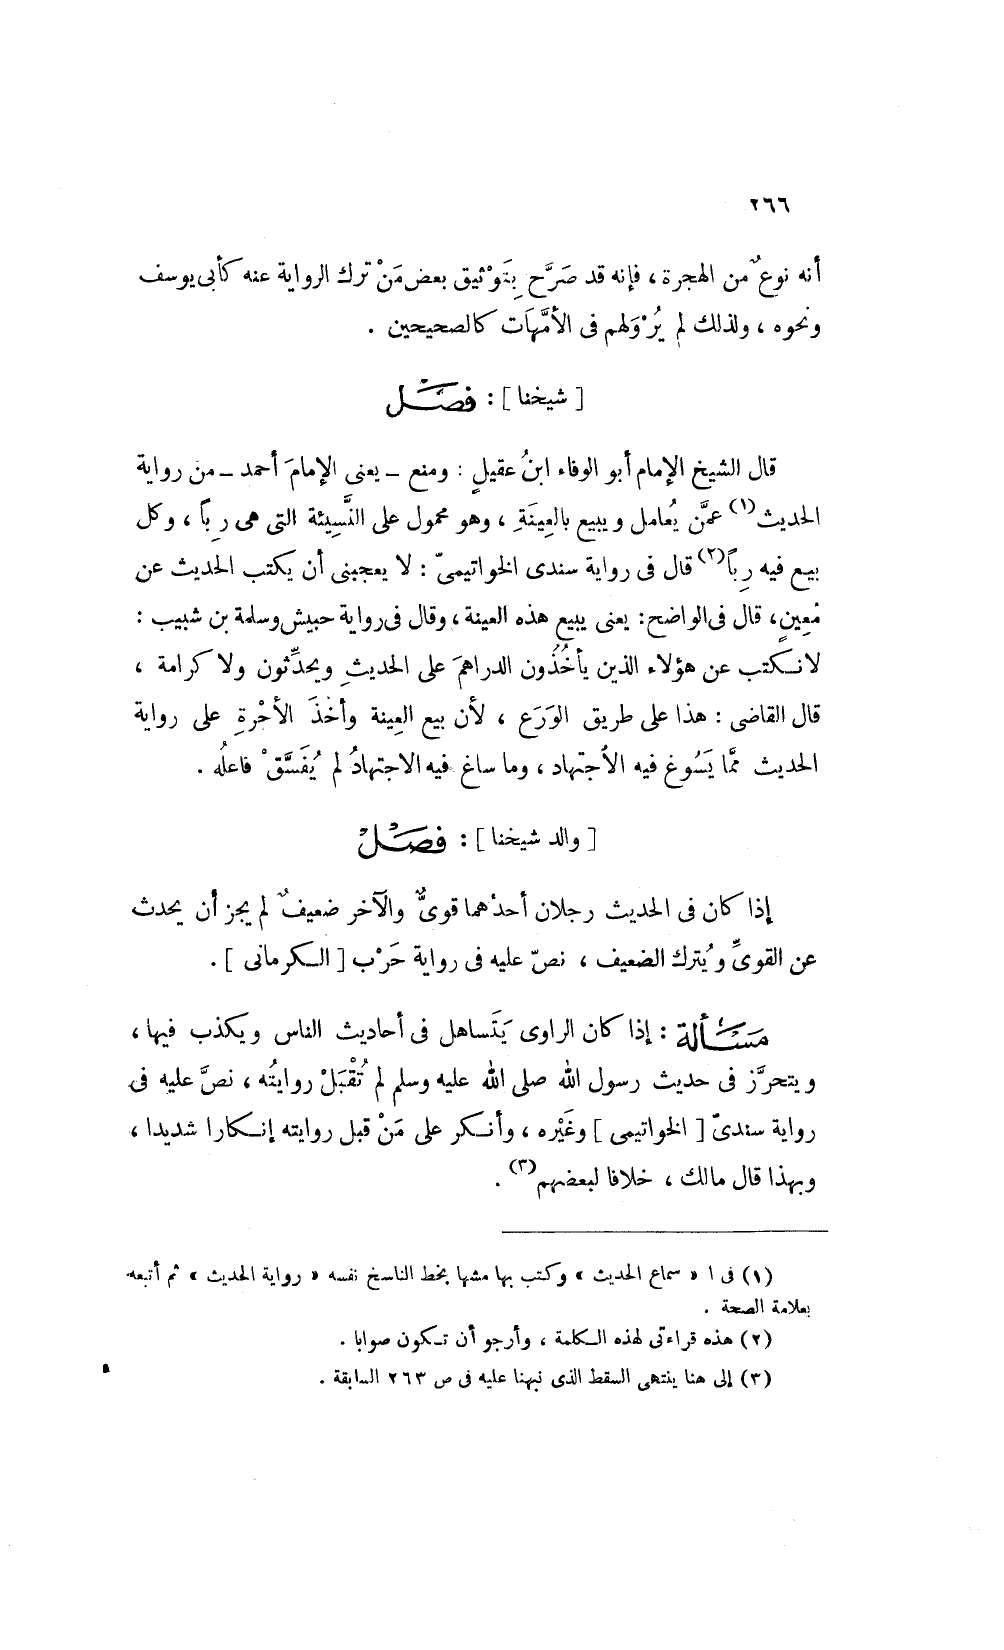 ٢٦٦
أنه نوعٌ من الهجرة ، فإنه قد صَرَّح بِتَوْثيق بعض مَنْ ترك الرواية عنه كأبى يوسف
ونحوه ، ولذلك لم يُرْوَ لهم فى الأمَّهَات كالصحيحين .
[ شيخنا ] : فصَــْـل
قال الشيخ الإمام أبو الوفاء ابنُ عقيلٍ : ومنع ــ يعنى الإمامَ أحمد ــ من رواية
الحديث (١) عمَّن يُعامل ويبيع بالعِينَةِ ، وهو محمول على النَّسِيئة التى هى رِباً ، وكل
بيع فيه رِباً (٢) قال فى رواية سندى الخواتيمىّ : لا يعجبنى أن يكتب الحديث عن
مُعِينٍ ، قال فى الواضح : يعنى يبيع هذه العينة ، وقال فى رواية حبيش وسلمة بن شبيب :
لا نكتب عن هؤلاء الذين يأخُذُون الدراهمَ على الحديثِ ويحدِّثون ولا كرامة ،
قال القاضى : هذا على طريق الوَرَع ، لأن بيع العِينة وأخْذَ الأجْرةِ على رواية
الحديث ممَّا يَسُوغ فيه الاُجتهاد ، وما ساغ فيه الاجتهادُ لم يُفَسَّقْ فاعلُه .
[ والد شيخنا ] : فصَــْـلْ
إذا كان فى الحديث رجلان أحدُهما قوىٌّ والآخر ضعيفٌ لم يجز أن يحدث
عن القوىِّ ويُترك الضعيف ، نصّ عليه فى رواية حَرْب [ الكرمانى ] .
مَسْــألة : إذا كان الراوى يَتَساهل فى أحاديث الناس ويكذب فيها ،
ويتحرَّز فى حديث رسول الله صلى الله عليه وسلم لم تُقْبَلْ روايتُه ، نصَّ عليه فى
رواية سندىّ [ الخواتيمى ] وغَيْره ، وأنكر على مَنْ قبل روايته إنكارا شديدا ،
وبهذا قال مالك ، خلافا لبعضهم (٣) .
(١) فى ا « سماع الحديث » وكتب بها مشها بخط الناسخ نفسه « رواية الحديث » ثم أتبعه
بعلامة الصحة .
(٢) هذه قراءتى لهذه الكلمة ، وأرجو أن تكون صوابا .
(٣) إلى هنا ينتهى السقط الذى نبهنا عليه فى ص ٢٦٣ السابقة .